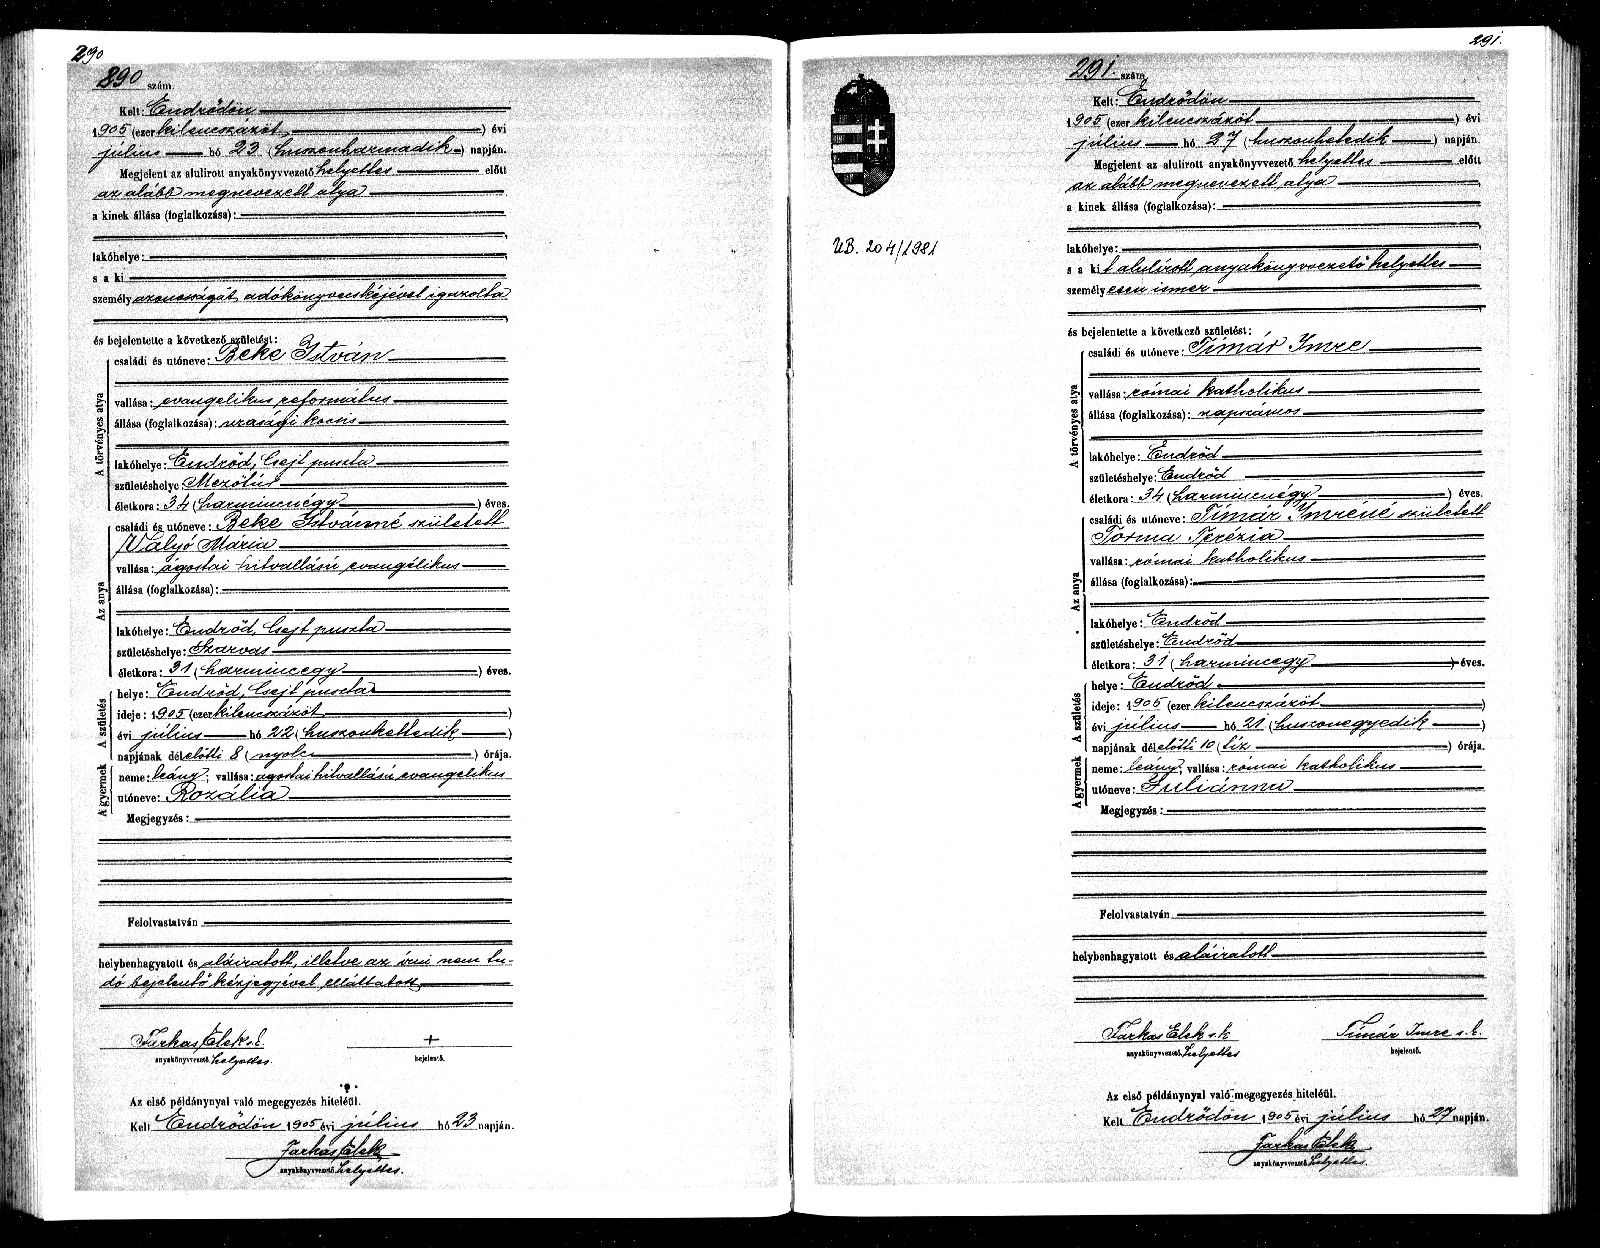 290
890 szám.
Kelt: Endrődön
1905 (ezer kilenczszázöt) évi
július hó 23 (huszonharmadik) napján.
Megjelent az alulirott anyakönyvvezető helyettes előtt
az alább megnevezett atya
a kinek állása (foglalkozása):
lakóhelye:
s a ki
személyazonosságát adókönyvecskéjével igazolta
és bejelentette a következő születést:
A törvényes atya
családi és utóneve: Beke István
vallása: evangelikus református
állása (foglalkozása): urasági kocsis
lakóhelye: Endrőd, Csejt puszta
születéshelye Mezőtúr
életkora: 34 (harmincnégy) éves.
Az anya
családi és utóneve: Beke Istvánné született
Valyó Mária
vallása: ágostai hitvallású evangélikus
állása (foglalkozása):
lakóhelye: Endrőd, Csejt puszta
születéshelye: Szarvas
életkora: 31 (harmincegy) éves.
A születés
helye: Endrőd, Csejt puszta
ideje: 1905 (ezer kilenczszázöt)
évi július hó 22 (huszonkettedik)
napjának délelőtti 8 (nyolc) órája.
A gyermek
neme: leány; vallása: ágostai hitvallású evangelikus
utóneve: Rozália
Megjegyzés:
Felolvastatván
helybenhagyatott és aláiratott, illetve az írni nem tu-
dó bejelentő kézjegyével elláttatott
Farkas Elek s. k. +
anyakönyvvezető helyettes. bejelentő.
Az első példánynyal való megegyezés hiteléül.
Kelt Endrődön 1905 évi július hó 23 napján.
Farkas Elek
anyakönyvvezető helyettes.
291.
291. szám
Kelt: Endrődön
1905 (ezer kilenczszázöt) évi
július hó 27 (huszonhetedik) napján.
Megjelent az alulirott anyakönyvvezető helyettes előtt
az alább megnevezett atya
a kinek állása (foglalkozása):
UB. 204/1981
lakóhelye:
s a kit alulírott anyakönyvvezető helyettes
személyesen ismer
és bejelentette a következő születést:
A törvényes atya
családi és utóneve: Tímár Imre
vallása: római katholikus
állása (foglalkozása): napszámos
lakóhelye: Endrőd
születéshelye: Endrőd
életkora: 34 (harmincnégy) éves.
Az anya
családi és utóneve: Tímár Imréné született
Torma Terézia
vallása: római katholikus
állása (foglalkozása):
lakóhelye: Endrőd
születéshelye: Endrőd
életkora: 31 (harmincegy) éves.
A születés
helye: Endrőd
ideje: 1905 (ezer kilenczszázöt)
évi július hó 21 (huszonegyedik)
napjának délelőtti 10 (tíz) órája.
A gyermek
neme: leány; vallása: római katholikus
utóneve: Juliánna
Megjegyzés:
Felolvastatván
helybenhagyatott és aláiratott
Farkas Elek s. k. Tímár Imre s. k.
anyakönyvvezető helyettes bejelentő.
Az első példánynyal való megegyezés hiteléül.
Kelt Endrődön 1905 évi július hó 27 napján.
Farkas Elek
anyakönyvvezető helyettes.